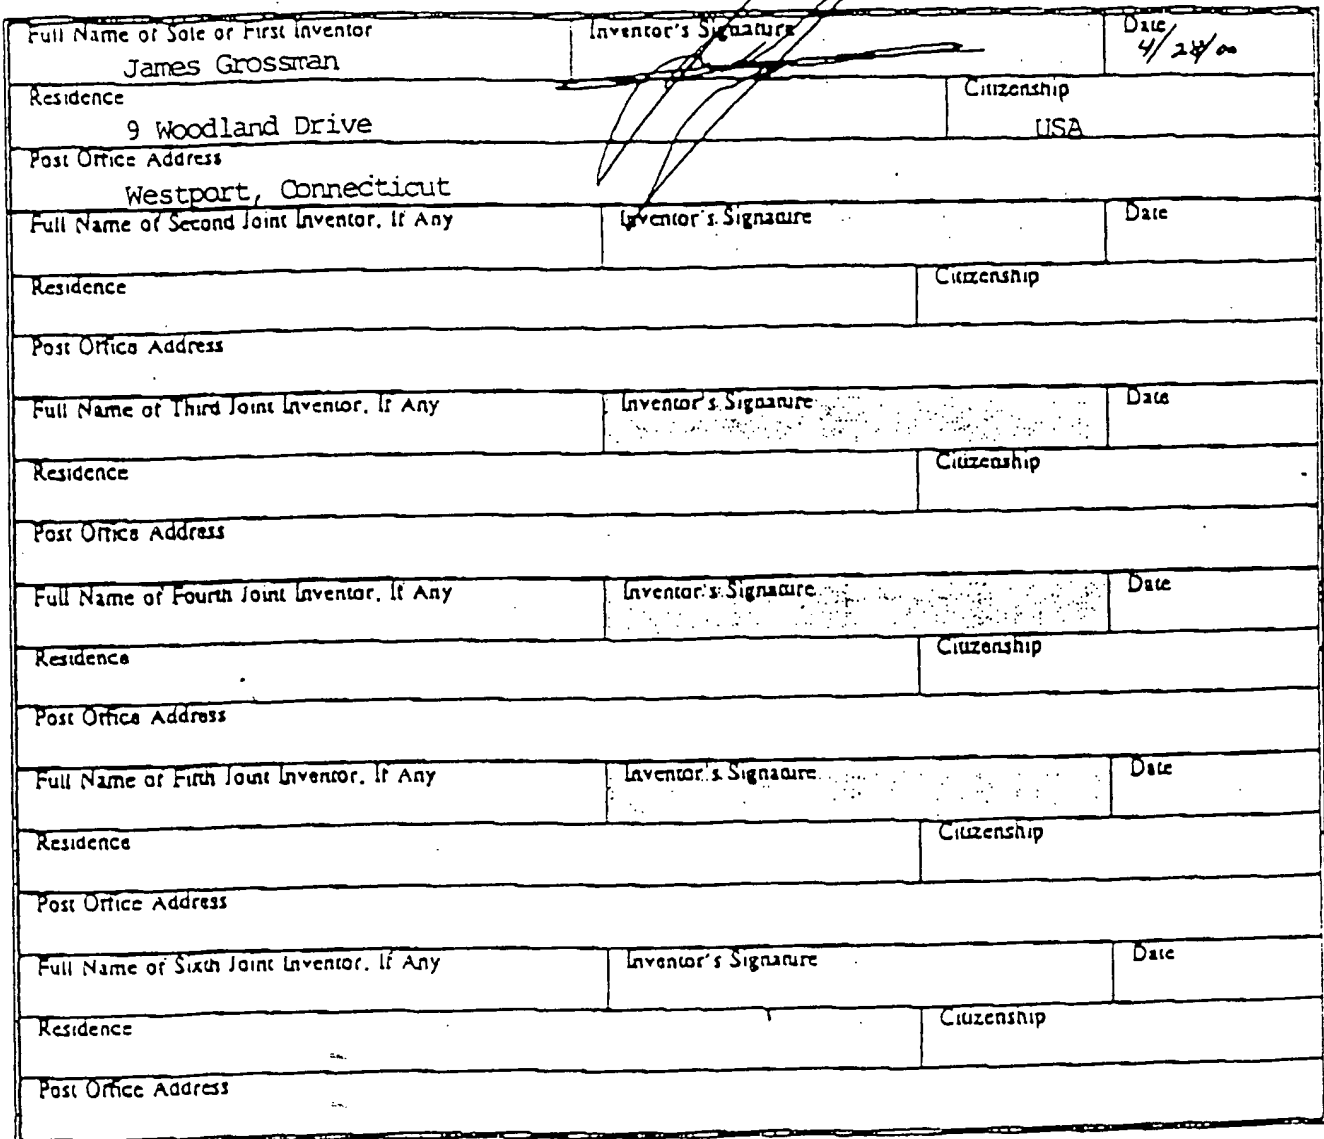 Full Name of Sole or First Inventor Inventor's Signature Date
James Grossman 4/28/00
Residence Citizenship
9 Woodland Drive USA
Post Office Address
Westport, Connecticut
Full Name of Second Joint Inventor, If Any Inventor's Signature Date
Residence Citizenship
Post Office Address
Full Name of Third Joint Inventor, If Any Inventor's Signature Date
Residence Citizenship
Post Office Address
Full Name of Fourth Joint Inventor, If Any Inventor's Signature Date
Residence Citizenship
Post Office Address
Full Name of Fifth Joint Inventor, If Any Inventor's Signature Date
Residence Citizenship
Post Office Address
Full Name of Sixth Joint Inventor, If Any Inventor's Signature Date
Residence Citizenship
Post Office Address